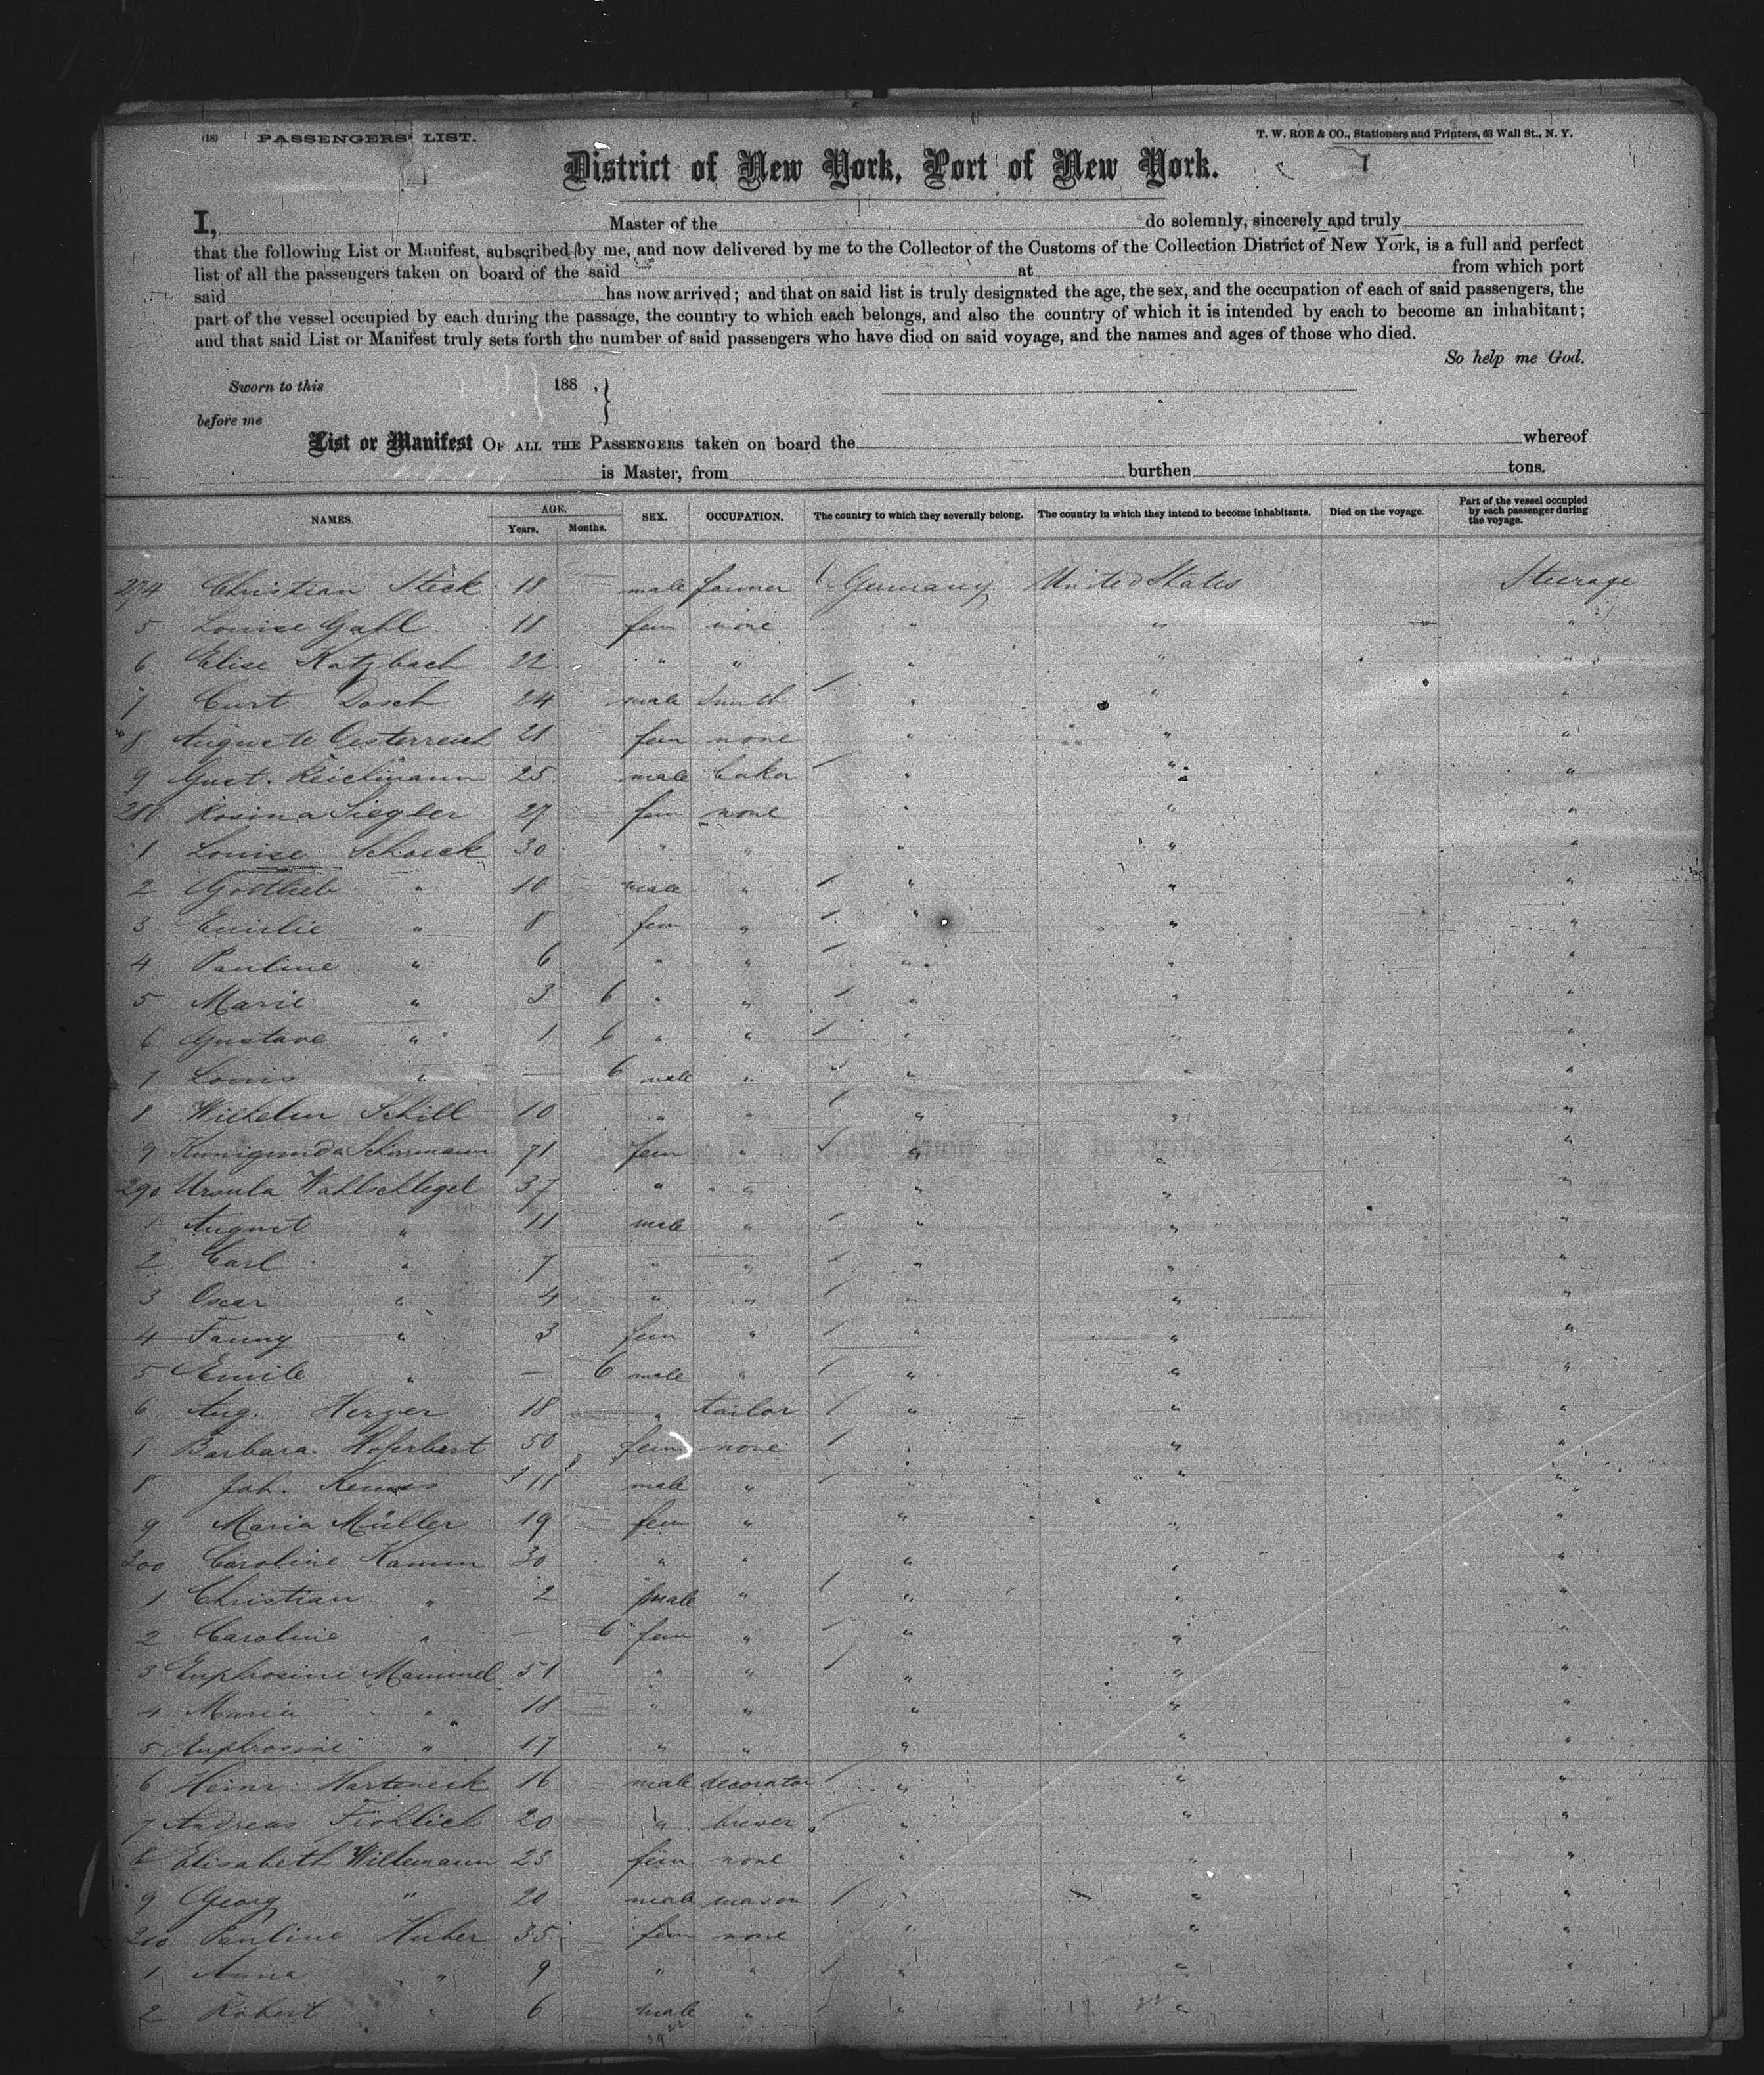 (18) PASSENGERS' LIST.
T. W. ROE & CO., Stationers and Printers, 63 Wall St., N. Y.
District of New York, Port of New York.
I, Master of the do solemnly, sincerely and truly
that the following List or Manifest, subscribed by me, and now delivered by me to the Collector of the Customs of the Collection District of New York, is a full and perfect
list of all the passengers taken on board of the said at from which port
said has now arrived; and that on said list is truly designated the age, the sex, and the occupation of each of said passengers, the
part of the vessel occupied by each during the passage, the country to which each belongs, and also the country of which it is intended by each to become an inhabitant;
and that said List or Manifest truly sets forth the number of said passengers who have died on said voyage, and the names and ages of those who died.
So help me God.
Sworn to this 188 , }
before me
List or Manifest OF ALL THE PASSENGERS taken on board the whereof
is Master, from burthen tons.
NAMES. AGE. Years. Months. SEX. OCCUPATION. The country to which they severally belong. The country in which they intend to become inhabitants. Died on the voyage. Part of the vessel occupied by each passenger during the voyage.
274 Christian Steck 18 male farmer Germany United States Steerage
5 Louise Gahl 18 fem none " " "
6 Elise Katzbach 22 " " " " "
7 Curt Dosch 24 male Smith " " "
8 Auguste Oesterreich 21 fem none " " "
9 Gust. Reichmann 25 male baker " " "
280 Rosina Siegler 27 fem none " " "
1 Louise Schaeck 30 " " " " "
2 Gottlieb " 10 male " " " "
3 Emilie " 8 fem " " " "
4 Pauline " 6 " " " " "
5 Marie " 3 6 " " " " "
6 Gustave " 1 6 " " " " "
7 Louis " — 6 male " " " "
8 Wilhelm Schill 10 " " " " "
9 Kunigunda Schirmann 71 fem " " " "
290 Ursula Wahlschlegel 37 " " " " "
1 August " 11 male " " " "
2 Carl " 7 " " " " "
3 Oscar " 4 " " " " "
4 Fanny " 3 fem " " " "
5 Emile " — 6 male " " " "
6 Aug. Herzer 18 " tailor " " "
7 Barbara Hoferbert 50 fem none " " "
8 Joh. male " " " "
9 Maria Müller 19 fem " " " "
300 Caroline Kamm 30 " " " " "
1 Christian " 2 male " " " "
2 Caroline " — 6 fem " " " "
3 Euphrosine Mammel 51 " " " " "
4 Maria " 18 " " " " "
5 Euphrosine " 17 " " " " "
6 Heinr. Harteneck 16 male decorator " " "
7 Andreas Fröhlich 20 " brewer " " "
8 Elisabeth Willemann 23 fem none " " "
9 Georg " 20 male mason " " "
310 Pauline Huber 35 fem none " " "
1 Anna " 9 " " " " "
2 Robert " 6 male " " " "